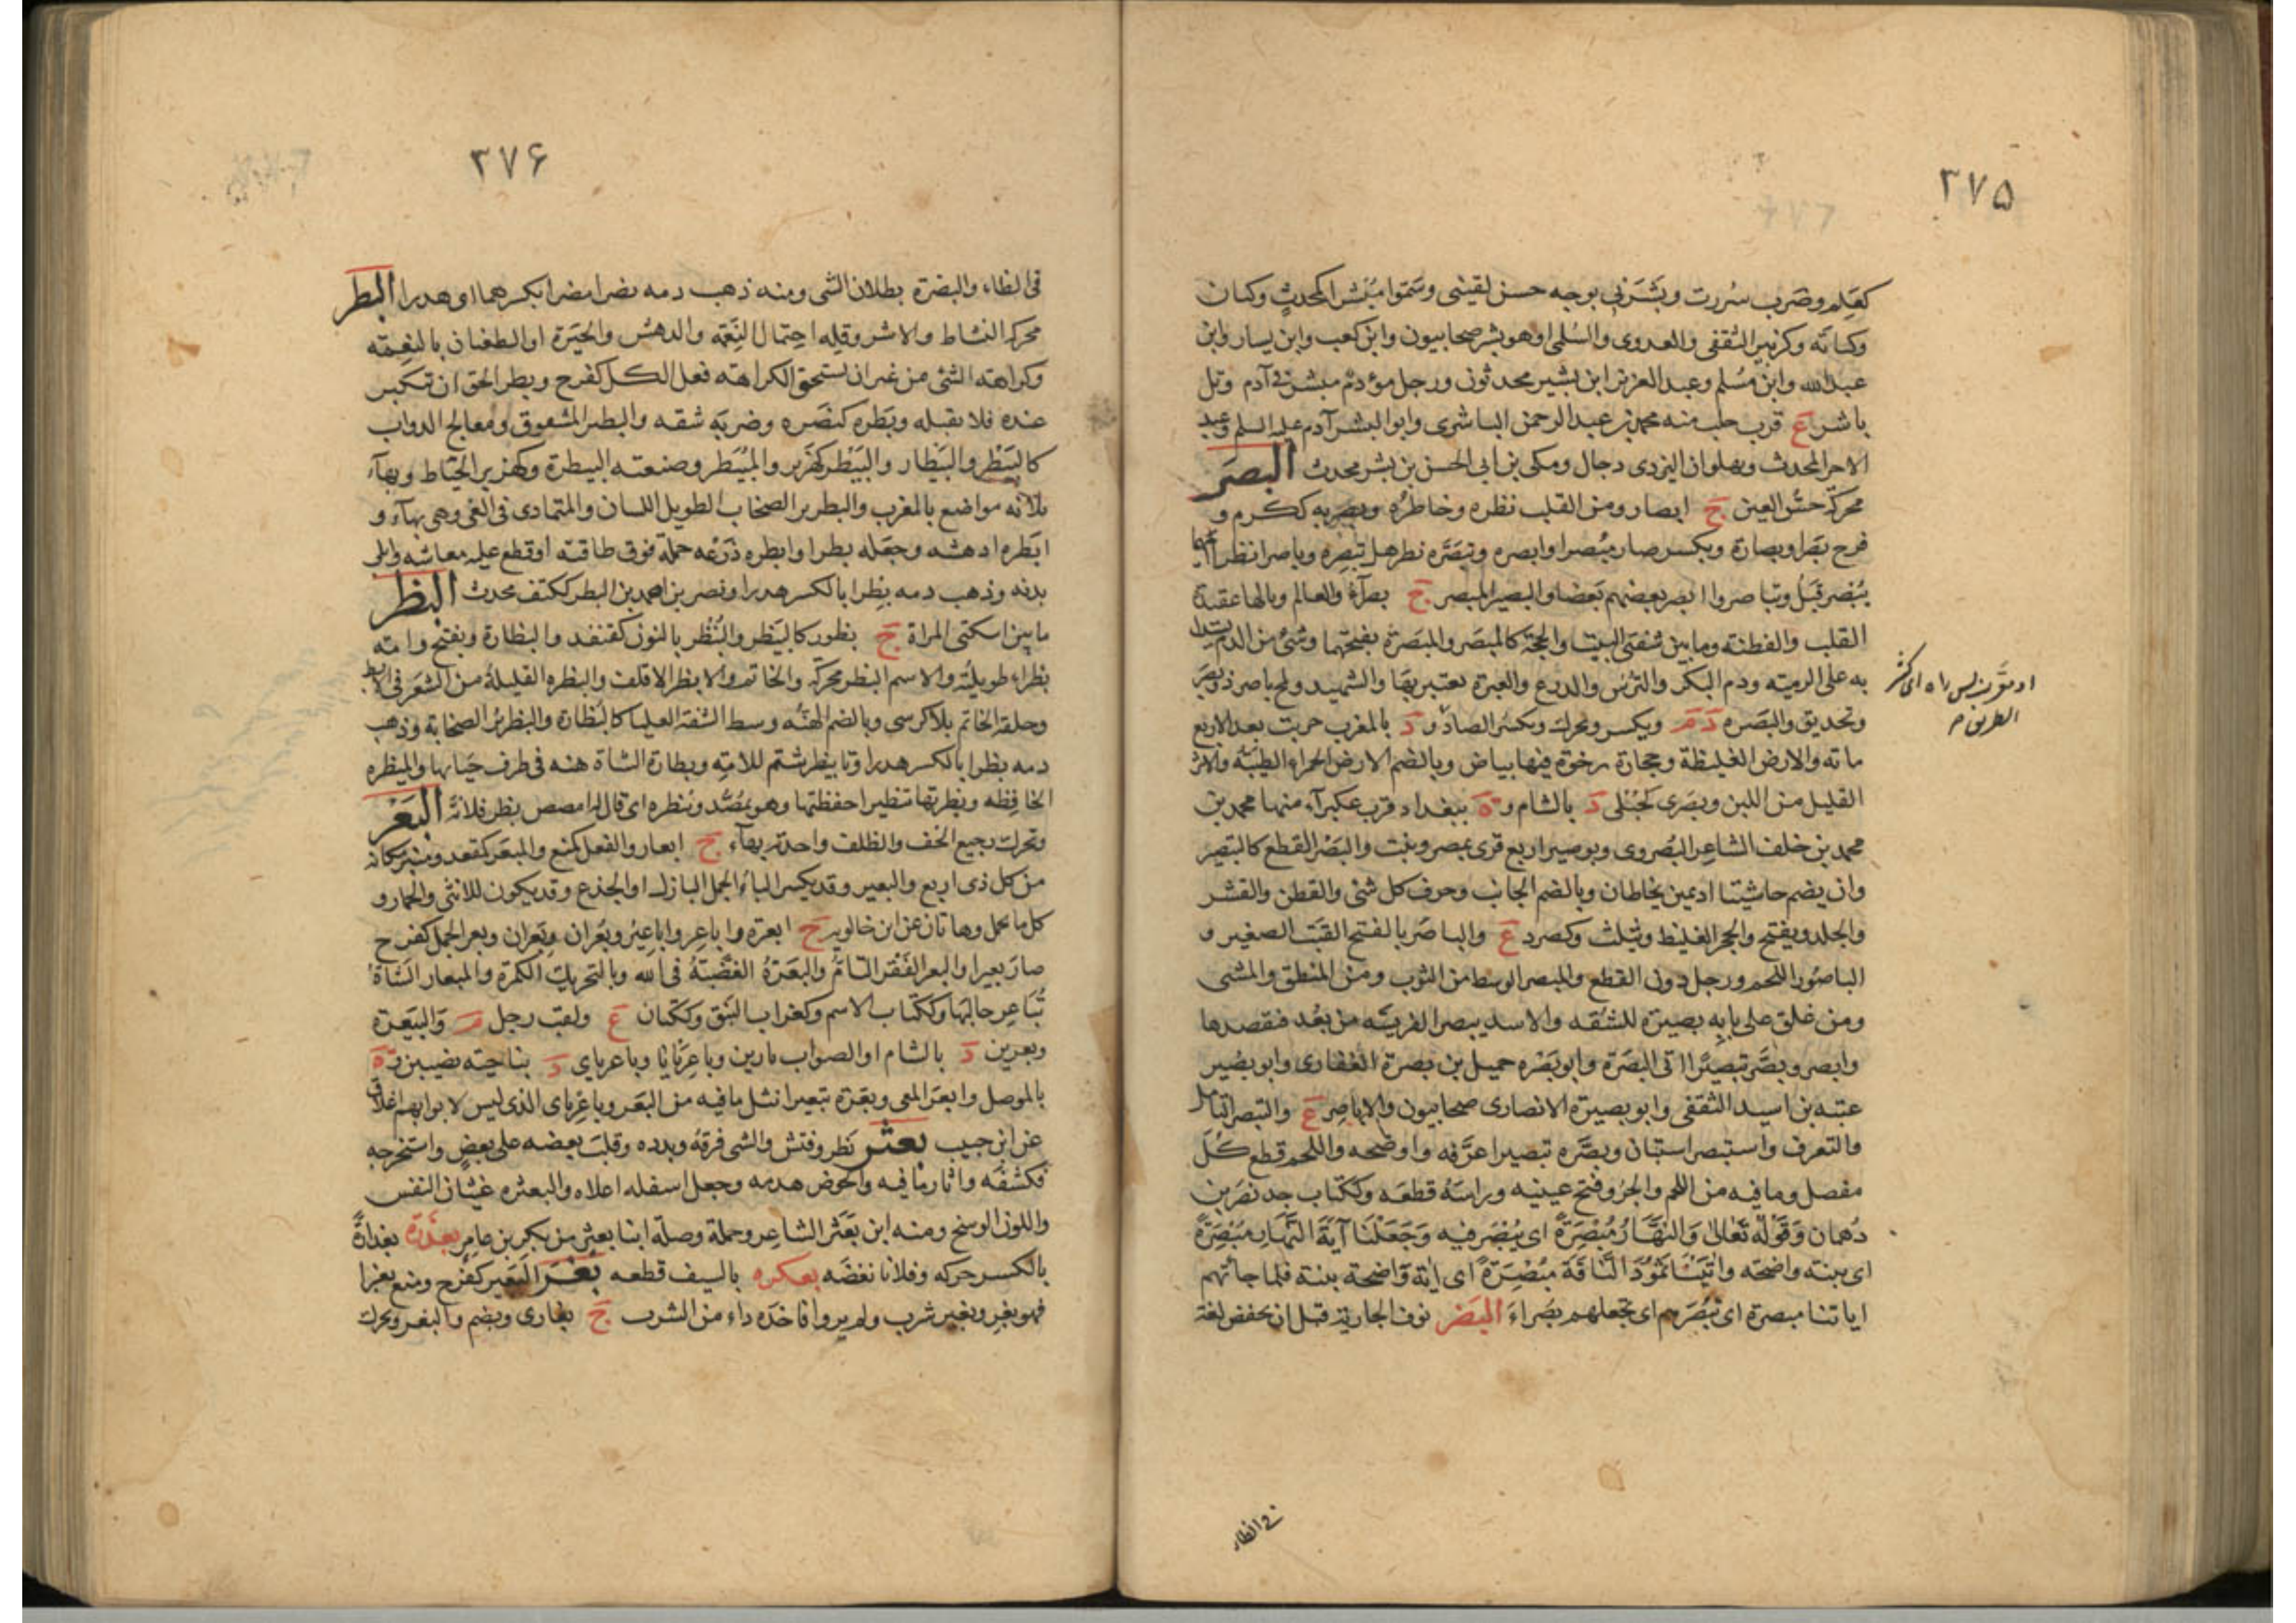 ٣٧۵
كعلم وضرب سررت وبشرني بوجه حسن لقيني وسموا مبشرا كمحدث وكتان
وكتابة وكزبير الثقفي والعدوي والسلمي او هو بشر صحابيون وابن كعب وابن يسار وابن
عبدالله وابن مسلم وعبد العزيز ابن بشير محدثون ورجل مؤدم مبشر في آدم وتل
باشر ع قرب حلب منه محمد بن عبد الرحمن الباشري وابو البشر آدم عليه السلم وعبد
الاخر المحدث وبهلوان اليزدي دجال ومكي بن ابي الحسن بن بشر محدث البصر
محركة حس العين ج ابصار ومن القلب نظره وخاطره وبصر به ككرم و
فرح بصرا وبصارة ويكسر صار مبصرا وابصره وتبصره نظر هل يبصره وباصرا نظرا ايهما
يبصر قبل وتباصروا ابصر بعضهم بعضا والبصير المبصر ج بصراء والعالم وبالها عقيدة
القلب والفطنة وما بين شقتي البيت والحجة كالمبصر والمبصرة بفتحهما وشئ من الدم يستدل
به على الرمية ودم البكر والترس والدرع والعبرة يعتبر بها والشهيد ولمح باصر ذو بصر
وتحديق والبصره د م ويكسر ويحرك ويكسر الصاد و د بالمغرب خربت بعد الاربع
مائه والارض الغليظة وحجارة رخوة فيها بياض وبالضم الارض الحمراء الطيبة والاثر
القليل من اللبن وبصرى كحبلى د بالشام و ة ببغداد قرب عكبرآء منها محمد بن
محمد بن خلف الشاعر البصروي وبوصير اربع قرى بمصر ونبت والبصر القطع كالتبصير
وان يضم حاشيتا اديمين يخاطان وبالضم الجانب وحرف كل شئ والقطن والقشر
والجلد ويفتح والحجر الغليظ ويثلث وكصرد ع والباصر بالفتح القتب الصغير و
الباصور اللحم ورجل دون القطع والمبصر الوسط من الثوب ومن المنطق والمشي
ومن علق على بابه بصيرة للشقه والاسد يبصر الفريسه من بعد فقصدها
وابصر وبصر تبصيرا اتى البصرة وابو بصره حميل بن بصرة الغفاري وابو بصير
عتبه بن اسيد الثقفي وابو بصيرة الانصاري صحابيون والاباصر ع والتبصر التامل
والتعرف واستبصر استبان وبصره تبصيرا عرفه واوضحه واللحم قطع كل
مفصل وما فيه من اللحم والجرو فتح عينيه وراسه قطعه وككتاب جد نصر بن
دهمان وقوله تعالى والنهار مبصرة اى يبصر فيه وجعلنا آية النهار مبصرة
اى بينه واضحه واتينا ثمود الناقة مبصرة اى اية واضحة بينة فلما جائتهم
اياتنا مبصرة اى تبصرهم اى تجعلهم بصراء البضر نوف الجارية قبل ان تخفض لغة
الطريق م
في الظاء
٣٧۶
في الظاء والبضرة بطلان الشئ ومنه ذهب دمه بضرا مضرا بكسرهما او هدرا البطر
محركة النشاط والاشر وقله احتمال النعمة والدهش والحيرة او الطغيان بالنعمة
وكراهته الشئ من غير ان يستحق الكراهته فعل الكل كفرح وبطر الحق ان تكبر
عنده فلا يقبله وبطره كنصره وضربه شقه والبطير المشقوق ومعالج الدواب
كالبيطر والبيطار والبيطر كهزبر والمبيطر وصنعته البيطرة وكهزبر الخياط وبهآء
ثلاثه مواضع بالمغرب والبطرير الصخاب الطويل اللسان والمتمادي في الغي وهي بهآء و
ابطره ادهشه وجعله بطرا وابطره ذرعه حمله فوق طاقته او قطع عليه معاشه وابلى
بدنه وذهب دمه بطرا بالكسر هدرا ونصر بن احمد بن البطر ككتف محدث البظر
ما بين اسكتي المراة ج بظور كالبيظر والبنظر بالنون كقنفذ والبظارة ويفتح وامه
بظراء طويلته والاسم البظر محركة والخاتم والابظر الاقلف والبظره القليلة من الشعر في الابط
وحلقة الخاتم بلا كرسي وبالضم الهنه وسط الشفة العليا كالبظارة والبظرير الصخابة وذهب
دمه بظرا بالكسر هدرا ويا بيظر شتم للامة وبظارة الشاة هنه في طرف حيائها والمبظره
الخافظه وبظرتها تبظيرا خفظتها وهو يمصه ويبظره اى قال له امصص بظر فلانة البعر
ويحرك رجيع الخف والظلف واحدته بهآء ج ابعار والفعل كمنع والمبعر كمقعد ومنبر مكانه
من كل ذي اربع والبعير وقد يكسر الباء الجمل البازل او الجذع وقد يكون للانثى والحمار و
كل ما يحمل وهاتان عن ابن خالويه ج ابعرة واباعر واباعير وبعران وبعران وبعر الجمل كفرح
صار بعيرا والبعر الفقر التام والبعرة الغضبة في الله وبالتحريك الكمرة والمبعار الشاة
تباعر حالبها وككتاب الاسم وكغراب النبق وككتان ع ولقب رجل م والبيعرة
وبعرين د بالشام او الصواب بارين وباعربايا وباعرباي د بناحية نصيبين و ة
بالموصل وابعر المعى وبعرة تبعيرا نثل ما فيه من البعر وباعرباي الذي ليس لابوابهم اغلاق
عن ابن حبيب بعثر نظر وفتش والشئ فرقه وبدده وقلب بعضه على بعض واستخرجه
فكشفه واثار ما فيه والحوض هدمه وجعل اسفله اعلاه والبعثره غثيان النفس
واللون الوسخ ومنه ابن بعثر الشاعر وحملة وصلة ابنا بعثر من بكر بن عامر بعذره بعذارة
بالكسر حركه وفلانا نغضه بعكره بالسيف قطعه بغر البعير كفرح ومنع بغرا
فهو بغر وبغير شرب ولم يرو فاخذه داء من الشرب ج بغارى ويضم والبغر ويحرك